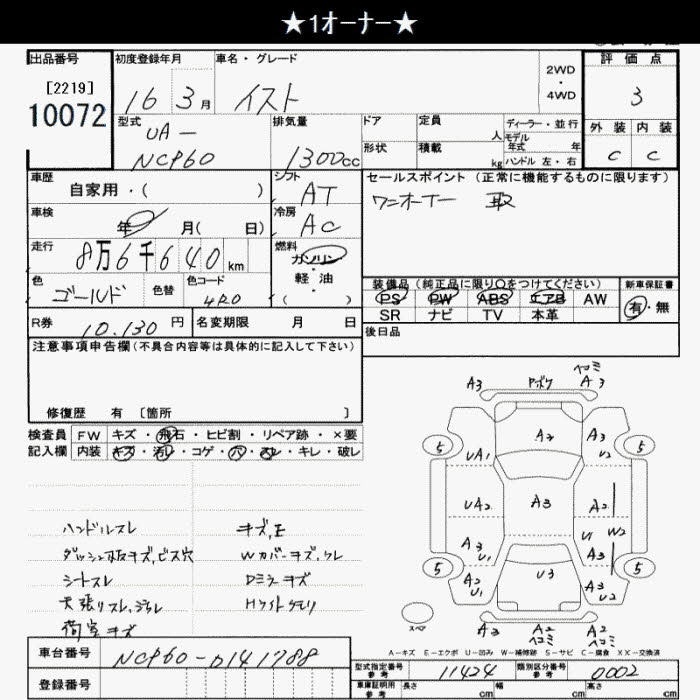 ★1オーナー★
出品番号 初度登録年月 車名・グレード 評価点
[2219]
10072
16年 3月 イスト 2WD・4WD 3
型式 排気量 ドア 定員 人 ディーラー・並行 外装 内装
UA-
NCP60 1300cc 形状 積載 kg モデル年式 年 ハンドル 左・右 C C
車歴 シフト セールスポイント (正常に機能するものに限ります)
自家用・( ) AT ワンオーナー 取
車検 冷房
年 月( 日) AC
走行 燃料
8万6千640km ガソリン・軽油
色 色替 色コード ( ) 装備品 (純正品に限り○をつけてください) 新車保証書
ゴールド 4R0 PS PW ABS エアB AW 有・無
SR ナビ TV 本革
R券 10,130円 名変期限 月 日 後日品
注意事項申告欄 (不具合内容等は具体的に記入して下さい)
修復歴 有 [箇所 ]
検査員 FW キズ・飛石・ヒビ割・リペア跡・×要
記入欄 内装 キズ・汚レ・コゲ・穴・スレ・キレ・破レ
A3 Pボケ ヘコミ A3
5 UA1 A2 A3 U2 5
UA2 A3 A2
A3 U1 U1 W2 A3
5 A2 U1 U3 A3 U2 5
スペア A3 A2 ヘコミ A2 ヘコミ
ハンドルスレ キズ,E
ダッシュ板キズ,ビス穴 Wカバーキズ,ワレ
シートスレ Dミラーキズ
天張リスレ,シワレ Hライトクモリ
荷室キズ
A-キズ E-エクボ U-凹み W-補修跡 S-サビ C-腐食 XX-交換済
車台番号 NCP60-0141788 型式指定番号 参考 11424 類別区分番号 参考 0002
登録番号 車庫証明用 参考 長さ cm 幅 cm 高さ cm